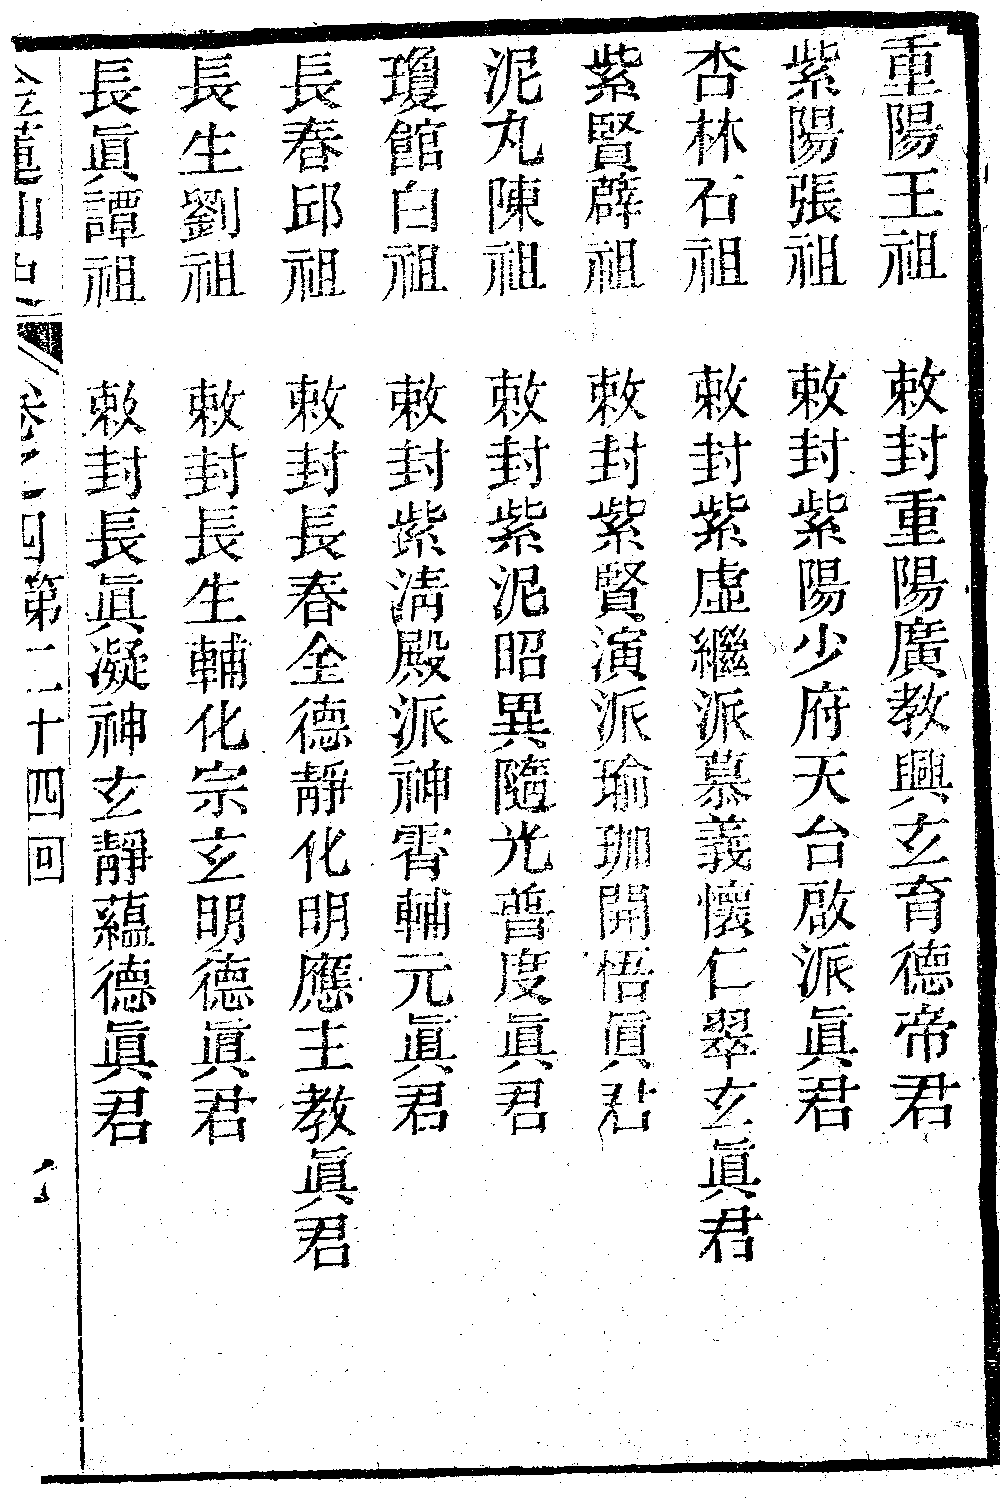 重陽王祖　敕封重陽廣教興玄育德帝君
紫陽張祖　敕封紫陽少府天台啟派眞君
杏林石祖　敕封紫虛繼派慕義懷仁翠玄眞君
紫賢薜祖　敕封紫賢演派瑜珈開悟眞君
泥丸陳祖　敕封紫泥昭異隨光普度眞君
瓊館白祖　敕封紫淸殿派神霄輔元眞君
長春邱祖　敕封長春全德靜化明應主教眞君
長生劉祖　敕封長生輔化宗玄明德眞君
長眞譚祖　敕封長眞凝神玄靜蘊德眞君
金蓮仙史　卷之四第二十四回